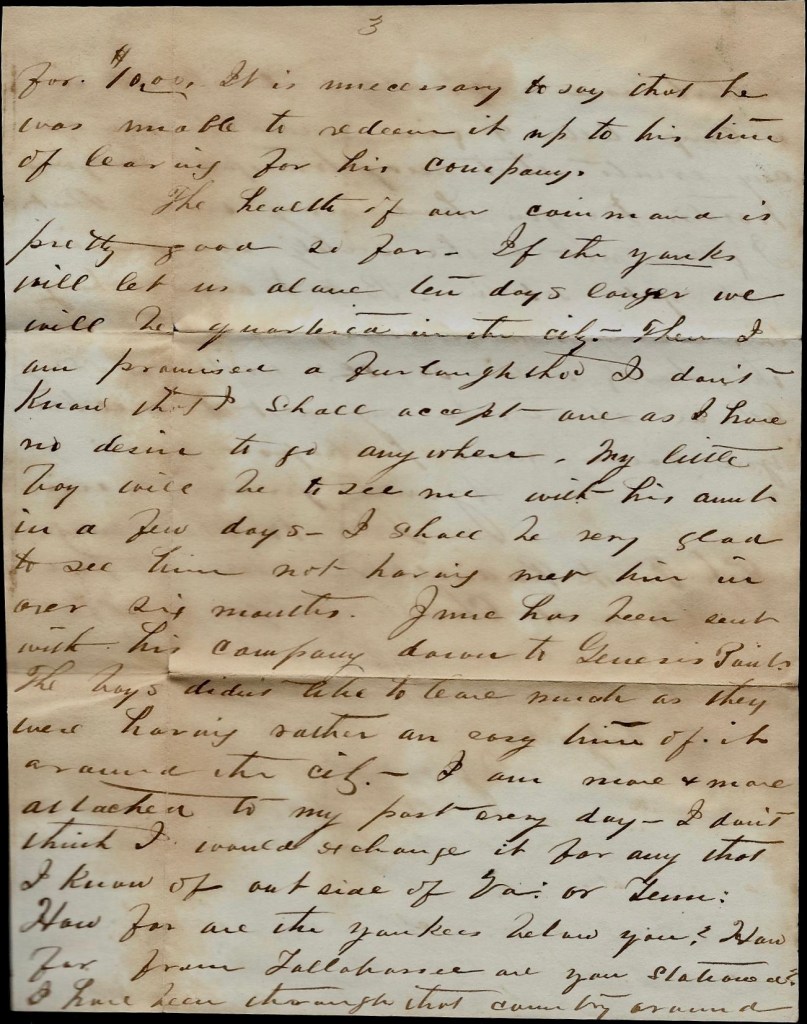 3
for $10.00. It is unecessary to say that he
was unable to redeem it up to his time
of leaving for his company.
The health of our command is
pretty good so far - If the yanks
will let us alone ten days longer we
will be quartered in the city - Then I
am promised a furlough tho' I don't
know that I shall accept one as I have
no desire to go anywhere. My little
boy will be to see me with his aunt
in a few days - I shall be very glad
to see him not having met him in
over six months. June has been sent
with his company down to Genesis Point.
The boys didn't like to leave much as they
were having rather an easy time of it
around the city. - I am more & more
attached to my post every day - I don't
think I would exchange it for any that
I know of out side of Va: or Tenn:
How far are the yankees below you? How
far from Tallahassee are you stationed?
I have been through that country around